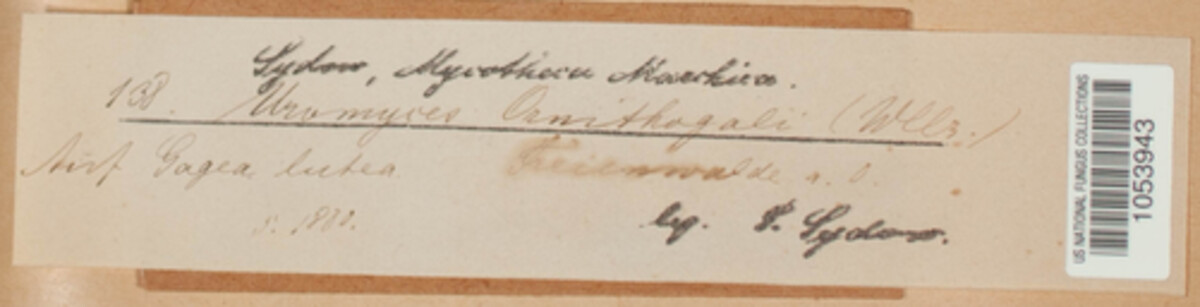 Sydow, Mycotheca Marchica.
138. Uromyces Ornithogali (Wllr.)
Auf Gagea lutea Freienwalde a. O.
5. 1880.
leg. P. Sydow.
US NATIONAL FUNGUS COLLECTIONS
1053943